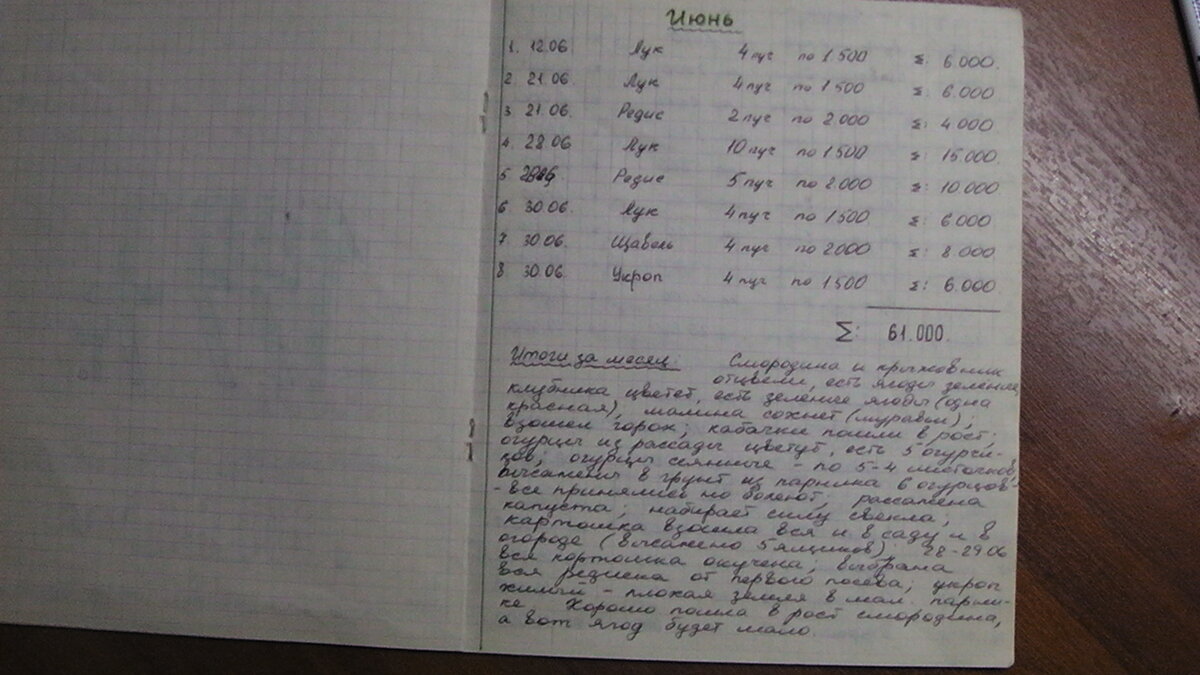 Июнь
1. 12.06 Лук 4 пуч по 1.500 Σ: 6.000.
2 21.06 Лук 4 пуч по 1500 Σ: 6.000
3 21.06. Редис 2 пуч по 2.000 Σ: 4.000
4. 28.06 Лук 10 пуч по 1500 Σ: 15.000.
5 Редис 5 пуч по 2000 Σ: 10.000
6 30.06. Лук 4 пуч по 1500 Σ: 6.000
7 30.06. Щавель 4 пуч по 2000 Σ: 8.000
8 30.06. Укроп 4 пуч по 1500 Σ: 6.000
Σ: 61.000.
Итоги за месяц: Смородина и крыжовник
отцвели, есть ягоды зеленые,
клубника цветет, есть зеленые ягоды (одна
красная), малина сохнет (муравьи);
взошел горох; кабачки пошли в рост;
огурцы из рассады цветут, есть 5 огурчи-
ков; огурцы сеянные - по 3-4 листочков,
высажены в грунт из парника 8 огурцов-
- все принялись но болеют; рассажена
капуста; набирает силу свекла;
картошка взошла вся и в саду и в
огороде (высажено 5 ящиков) 28-29.06
вся картошка окучена; выбрана
вся редиска от первого посева; укроп
хилый - плохая земля в мал. парни-
ке. Хорошо пошла в рост смородина,
а вот ягод будет мало.